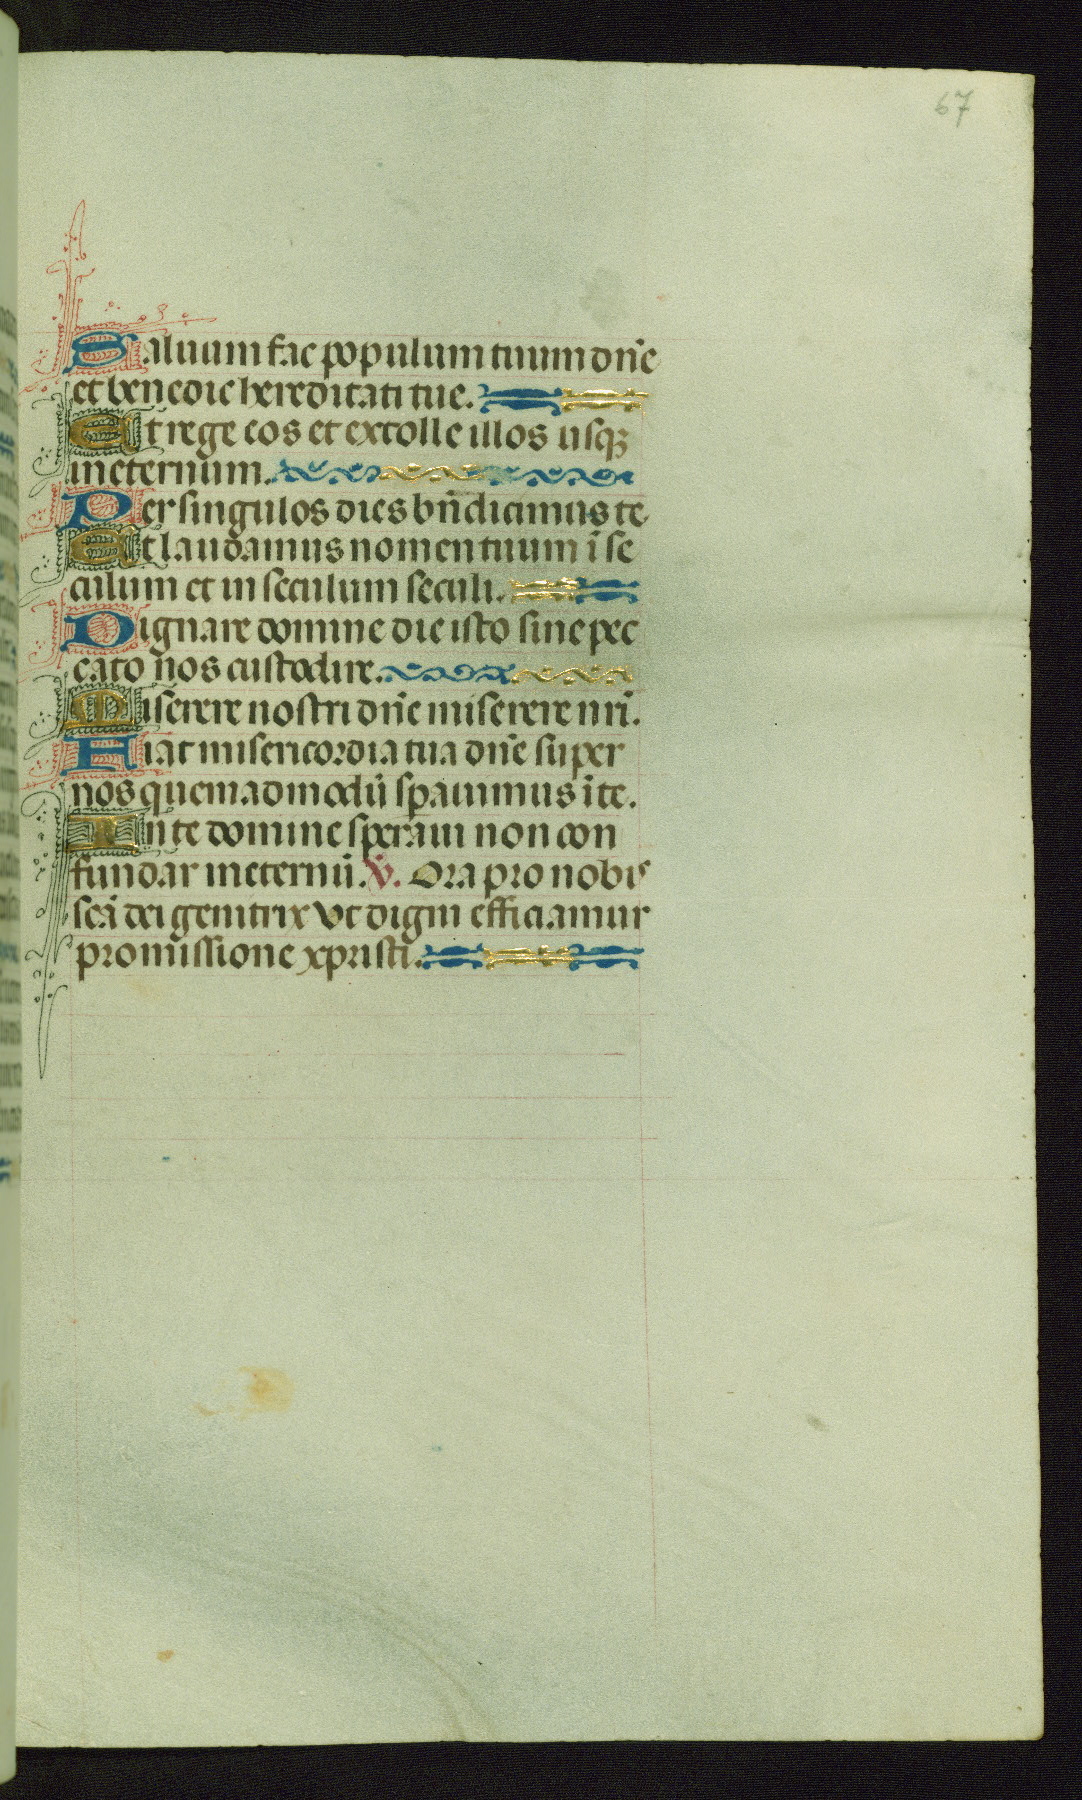 67
Saluum fac populum tuum dn̄e
et benedic hereditati tue.
Et rege eos et extolle illos usqꝫ
ineternum.
Per singulos dies bn̄dicimus te
Et laudamus nomen tuum ī se
culum et in seculum seculi.
Dignare domine die isto sine pec
cato nos custodire.
Miserere nostri dn̄e miserere nr̄i.
Fiat misericordia tua dn̄e super
nos quemadmodū sperauimus ī te.
In te domine speraui non con
fundar ineternū. V̄. Ora pro nobis
scā dei genitrix Vt digni efficiamur
promissione xpristi.